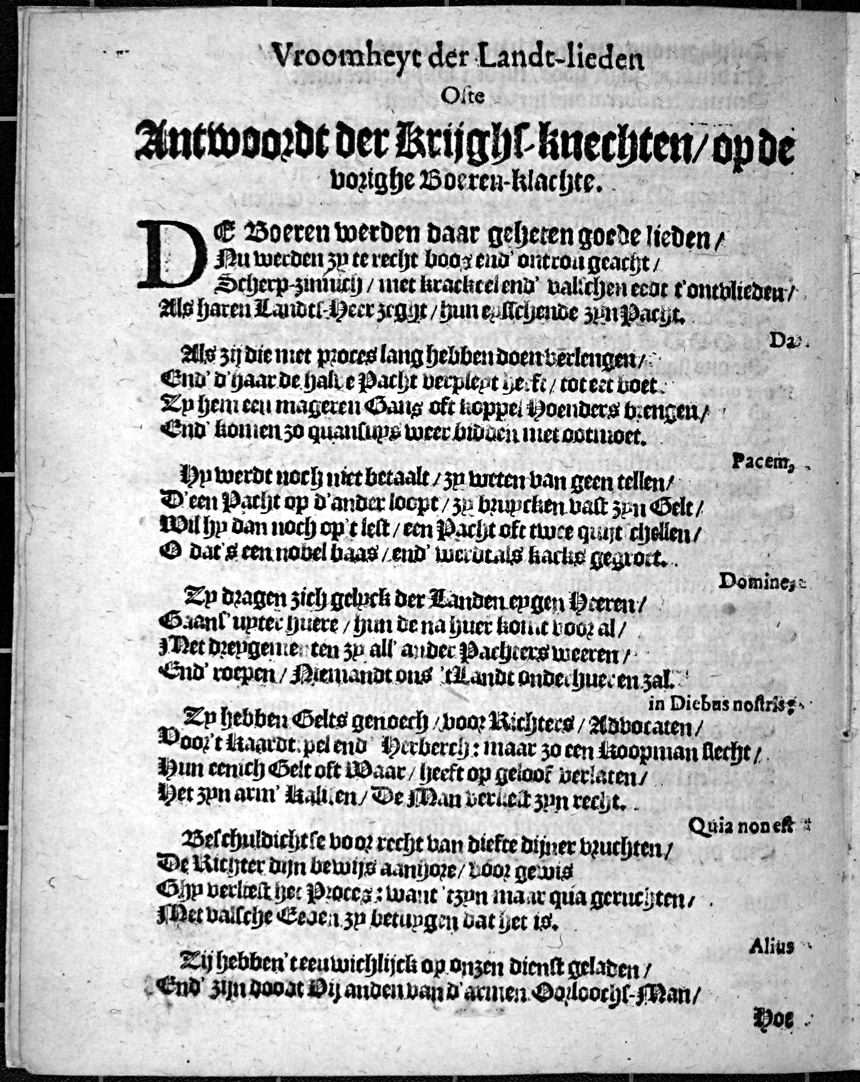 Vroomheyt der Landt-lieden
Ofte
Antwoordt der Krijghs-knechten/ op de
vorighe Boeren-klachte.
DE Boeren werden daar geheten goede lieden/
Nu werden zy te recht boos end' ontrou geacht/
Scherp-zinnich/ met krackeel end' valschen eedt t'ontvlieden/
Als haren Landts-Heer zeght/ hun eysschende zyn Pacht.
Da
Als zij die met proces lang hebben doen verlengen/
End' d'haar de halve Pacht verpleyt heeft/ tot een boet
Zy hem een mageren Gans oft koppel Hoenders brengen/
End' komen zo quansuys weer bidden met ootmoet.
Pacem,
Hy werdt noch niet betaalt/ zy weten van geen tellen/
D'een Pacht op d'ander loopt/ zy bruycken vast zyn Gelt/
Wil hy dan noch op't lest/ een Pacht oft twee quijt schellen/
O dat's een nobel baas/ end' werdt als kacks gegroet.
Domine,
Zy dragen zich gelyck der Landen eygen Heeren/
Gaans' uyter huere/ hun de na huer komt voor al/
Met dreygementen zy all' ander Pachters weeren/
End' roepen/ Niemandt ons 't Landt onderhueren zal.
in Diebus nostris,
Zy hebben Gelts genoech/ voor Richters/ Advocaten/
Voor't Kaardtspel end' Herberch: maar zo een Koopman slecht/
Hun eenich Gelt oft Waar/ heeft op geloof verlaten/
Het zyn arm' Kalven/ De Man verliest zyn recht.
Quia non est
Beschuldicht se voor recht van diefte dijner vruchten/
De Richter dijn bewijs aanhore/ voor gewis
Ghy verliest het Proces: want 'tzyn maar qua geruchten/
Met valsche Eeden zy betuygen dat het is.
Alius
Zij hebben 't eeuwichlijck op onzen dienst geladen/
End' zijn doodt Vijanden van d'armen Oorloochs-Man/
Hoe